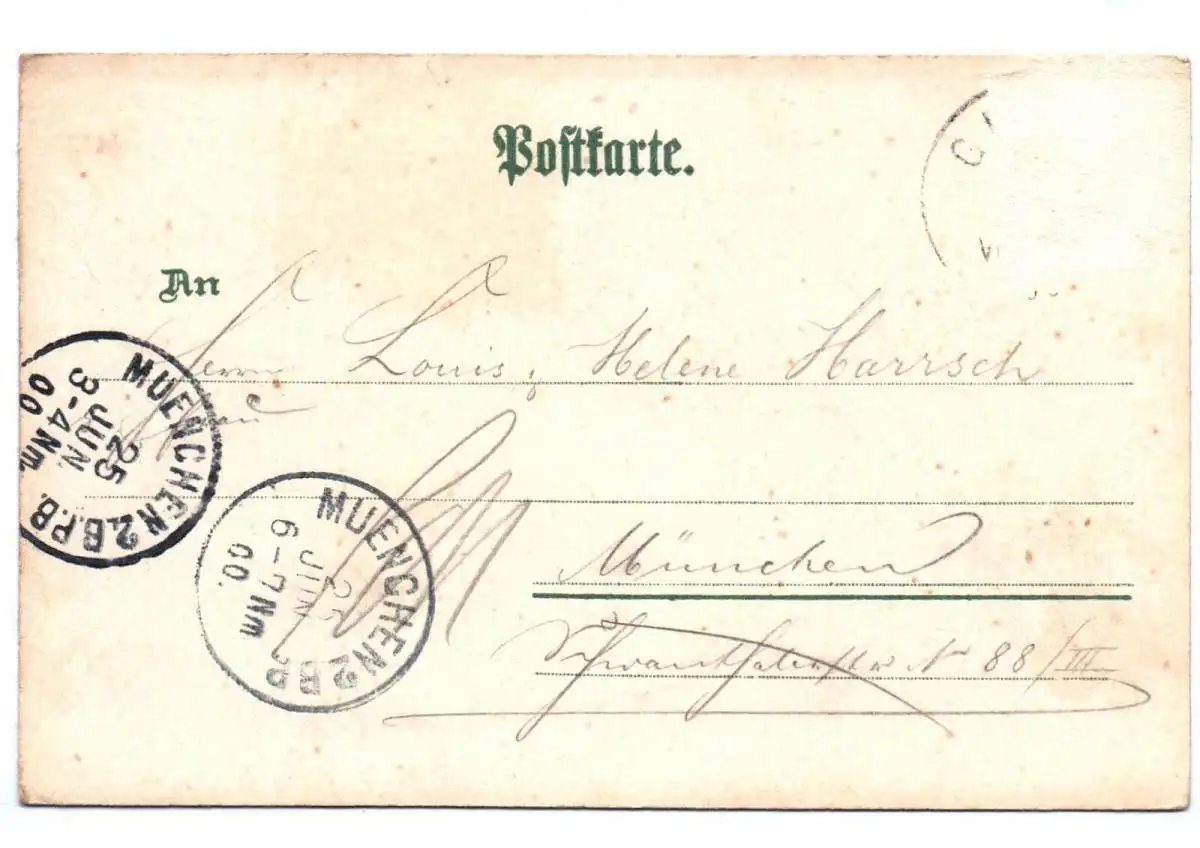 Postkarte.
An
Herrn Louis, Helene Harrsch
Frau
München
Schwanthalerstr No 88/III
MUENCHEN 2.B.P.B.
25 JUN.
3-4 Nm.
00
MUENCHEN 2 B.P.
25 JUN
6-7 Nm
00.